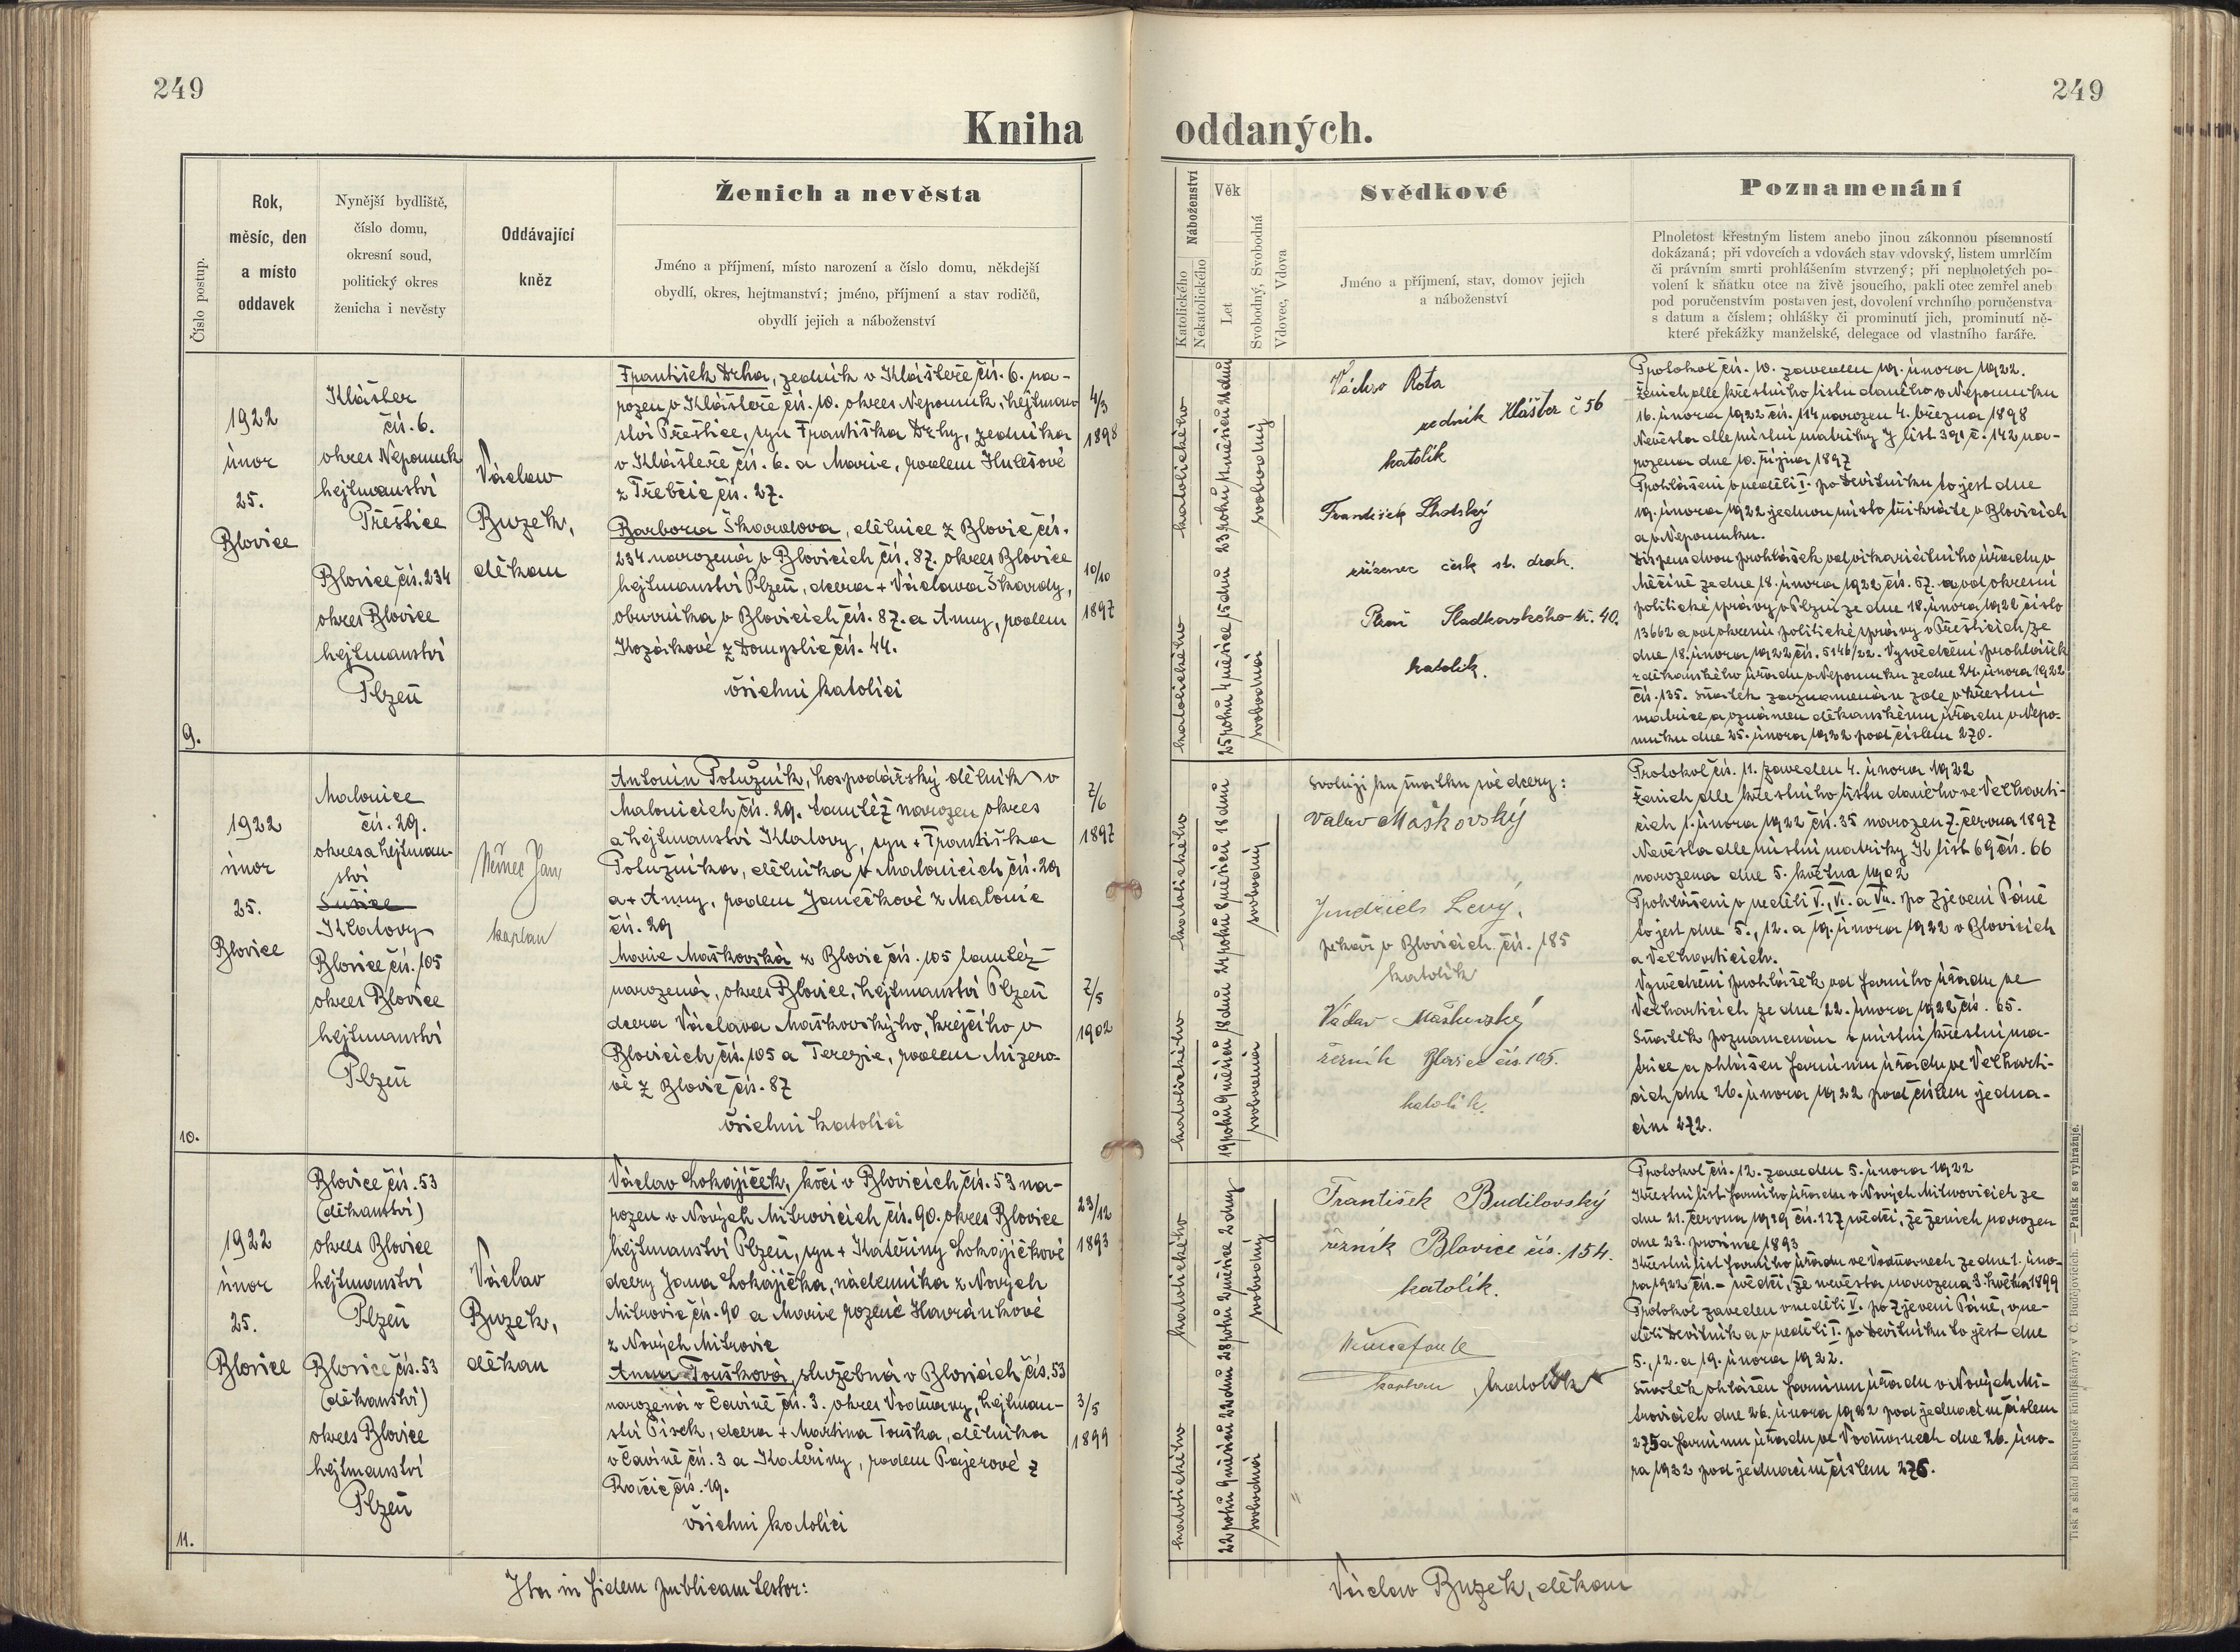 249
249
Kniha
oddaných.
Číslo postup.
Rok,
měsíc, den
a místo
oddavek
Nynější bydliště,
číslo domu,
okresní soud,
politický okres
ženicha i nevěsty
Oddávající
kněz
Ženich a nevěsta
Jméno a příjmení, místo narození a číslo domu, někdejší
obydlí, okres, hejtmanství; jméno, příjmení a stav rodičů,
obydlí jejich a náboženství
Náboženství
Katolického
Nekatolického
Věk
Let
Svobodný, Svobodná
Vdovec, Vdova
Svědkové
Jméno a příjmení, stav, domov jejich
a náboženství
Poznamenání
Plnoletost křestným listem anebo jinou zákonnou písemností
dokázaná; při vdovcích a vdovách stav vdovský, listem umrlčím
či právním smrti prohlášením stvrzený; při neplnoletých po-
volení k sňátku otce na živě jsoucího, pakli otec zemřel aneb
pod poručenstvím postaven jest, dovolení vrchního poručenstva
s datum a číslem; ohlášky či prominutí jich, prominutí ně-
které překážky manželské, delegace od vlastního faráře.
9.
1922
únor
25.
Blovice
Klášter
čís. 6.
okres Nepomuk
hejtmanství
Přeštice
Blovice čís. 234
okres Blovice
hejtmanství
Plzeň
Václav
Buzek,
děkan
František Drha, zedník v Klášteře čís. 6. na-
rozen v Klášteře čís. 10. okres Nepomuk, hejtman-
ství Přeštice, syn Františka Drhy, zedníka
v Klášteře čís. 6. a Marie, rodem Hulešové
z Třebčic čís. 27.
Barbora Škardova, dělnice z Blovic čís.
234 narozená v Blovicích čís. 87. okres Blovice
hejtmanství Plzeň, dcera + Václava Škardy,
obuvníka v Blovicích čís. 87. a Anny, rodem
Kozákové z Domyslic čís. 44.
všichni katolíci
4/3
1898
10/10
1897
katolického
23 roků 11 měsíců 21 dnů
svobodný
katolického
25 roků 4 měsíce 15 dnů
svobodná
Václav Rota
zedník Klášter č 56
katolík
František Lhotský
zřízenec česk. st. drah.
Plzeň Sladkovského tř. 40.
katolík.
Protokol čís. 10. zaveden 19. února 1922.
Ženich dle křestního listu daného v Nepomuku
16. února 1922 čís. 114 narozen 4. března 1898
Nevěsta dle místní matriky J list 391 č. 142 na-
rozena dne 10. října 1897
Prohlášeni v neděli I. po Devítníku to jest dne
19. února 1922 jednou místo třikráte v Blovicích
a v Nepomuku.
Dispens dvou prohlášek od vikariátního úřadu v
Měčíně ze dne 18. února 1922 čís. 67. a od okresní
politické správy v Plzni ze dne 18. února 1922 číslo
13662 a od okresní politické správy v Přešticích ze
dne 18. února 1922 čís. 5146/22. Vysvědčení prohlášek
z děkanského úřadu v Nepomuku ze dne 24. února 1922
čís. 135. Sňatek zaznamenán zde v křestní
matrice a oznámen děkanskému úřadu v Nepo-
muku dne 25. února 1922 pod číslem 270.
10.
1922
únor
25.
Blovice
Malonice
čís. 29.
okres a hejtman-
ství
Sušice
Klatovy
Blovice čís. 105
okres Blovice
hejtmanství
Plzeň
Němec Jan
kaplan
Antonín Potužník, hospodářský dělník v
Malonicích čís. 29. tamtéž narozen okres
a hejtmanství Klatovy, syn + Františka
Potužníka, dělníka v Malonicích čís. 29
a + Anny, rodem Janečkové z Malonic
čís. 29
Marie Maškovská z Blovic čís. 105 tamtéž
narozená, okres Blovice, hejtmanství Plzeň
dcera Václava Maškovského, krejčího v
Blovicích čís. 105 a Terezie, rodem Mizero-
vé z Blovic čís. 87
všichni katolíci
7/6
1897
7/5
1902
katolického
24 roků 8 měsíců 18 dnů
svobodný
katolického
19 roků 9 měsíců 18 dnů
svobodná
Svoluji ku sňatku své dcery:
Václav Maškovský
Jindřich Levý,
pekař v Blovicích čís. 185
katolík
Václav Maškovský
řezník Blovice čís. 105.
katolík.
Protokol čís. 11. zaveden 4. února 1922
Ženich dle křestního listu daného ve Velharti-
cích 1. února 1922 čís. 35 narozen 7. června 1897
Nevěsta dle místní matriky K list 69 čís. 66
narozena dne 5. května 1902
Prohlášeni v neděli V., VI. a VII. po Zjevení Páně
to jest dne 5., 12. a 19. února 1922 v Blovicích
a Velharticích.
Vysvědčení prohlášek od farního úřadu ve
Velharticích ze dne 22. února 1922 čís. 65.
Sňatek poznamenán v místní křestní ma-
trice a ohlášen farnímu úřadu ve Velharti-
cích dne 26. února 1922 pod číslem jedna-
cím 272.
11.
1922
únor
25.
Blovice
Blovice čís. 53
(děkanství)
okres Blovice
hejtmanství
Plzeň
Blovice čís. 53
(děkanství)
okres Blovice
hejtmanství
Plzeň
Václav
Buzek,
děkan
Václav Lokajíček, kočí v Blovicích čís. 53 na-
rozen v Nových Mitrovicích čís. 90. okres Blovice
hejtmanství Plzeň, syn + Kateřiny Lokajíčkové
dcery Jana Lokajíčka, nádenníka z Nových
Mitrovic čís. 90 a Marie rozené Havránkové
z Nových Mitrovic
Anna Toušková, služebná v Blovicích čís. 53
narozená v Čavíně čís. 3. okres Vodňany, hejtman-
ství Písek, dcera + Martina Touška, dělníka
v Čavíně čís. 3 a Kateřiny, rodem Pajerové z
Račic čís. 19.
všichni katolíci
23/12
1893
3/5
1899
katolického
28 roků 2 měsíce 2 dny
svobodný
katolického
22 roků 9 měsíců 22 dnů
svobodná
František Budilovský
řezník Blovice čís. 154.
katolík.
kaplan, katolík
Protokol čís. 12. zaveden 5. února 1922
Křestní list farního úřadu v Nových Mitrovicích ze
dne 21. června 1919 čís. 127 svědčí, že ženich narozen
dne 23. prosince 1893
Křestní list farního úřadu ve Vodňanech ze dne 1. úno-
ra 1922 čís. - svědčí, že nevěsta narozena 3. května 1899
Protokol zaveden v neděli V. po Zjevení Páně, v ne-
děli Devítník a v neděli I. po Devítníku to jest dne
5., 12. a 19. února 1922.
Sňatek ohlášen farnímu úřadu v Nových Mi-
trovicích dne 26. února 1922 pod jednacím číslem
275 a farnímu úřadu ve Vodňanech dne 26. úno-
ra 1922 pod jednacím číslem 276.
Ita in fidem publicam testor:
Václav Buzek, děkan
Tisk a sklad biskupské knihtiskárny v Č. Budějovicích. — Patisk se vyhražuje.